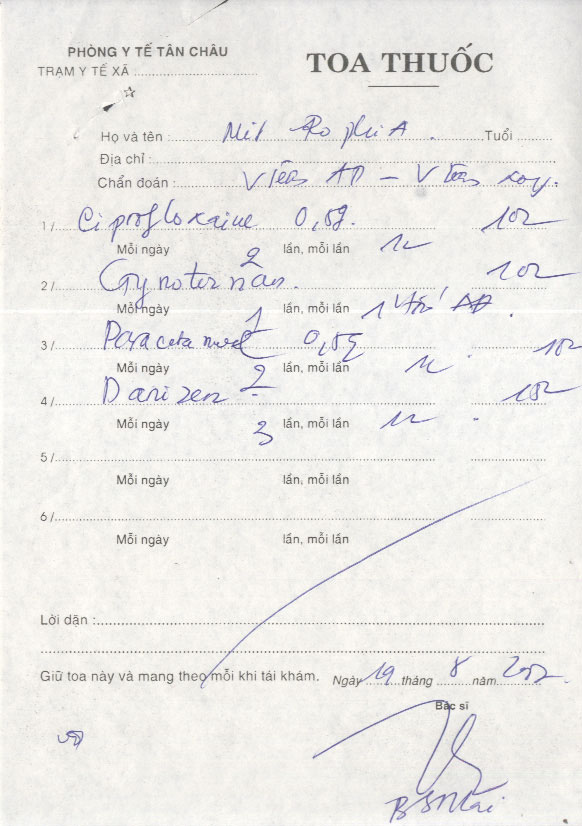 PHÒNG Y TẾ TÂN CHÂU
TRẠM Y TẾ XÃ :
TOA THUỐC
Họ và tên : Mit Ro phi A. Tuổi
Địa chỉ :
Chẩn đoán : V AD - V
1 / Ciprofloxacine 0,5g. 10v
Mỗi ngày 2 lần, mỗi lần 1v
2 / Gynoternan. 10v
Mỗi ngày 1 lần, mỗi lần 1
3 / Paracetamol 0,5g 10v
Mỗi ngày 2 lần, mỗi lần 1v
4 / Danizen 15v
Mỗi ngày 3 lần, mỗi lần 1v
5 /
Mỗi ngày lần, mỗi lần
6 /
Mỗi ngày lần, mỗi lần
Lời dặn :
Giữ toa này và mang theo mỗi khi tái khám. Ngày 19 tháng 8 năm
Bác sĩ
BS Mai